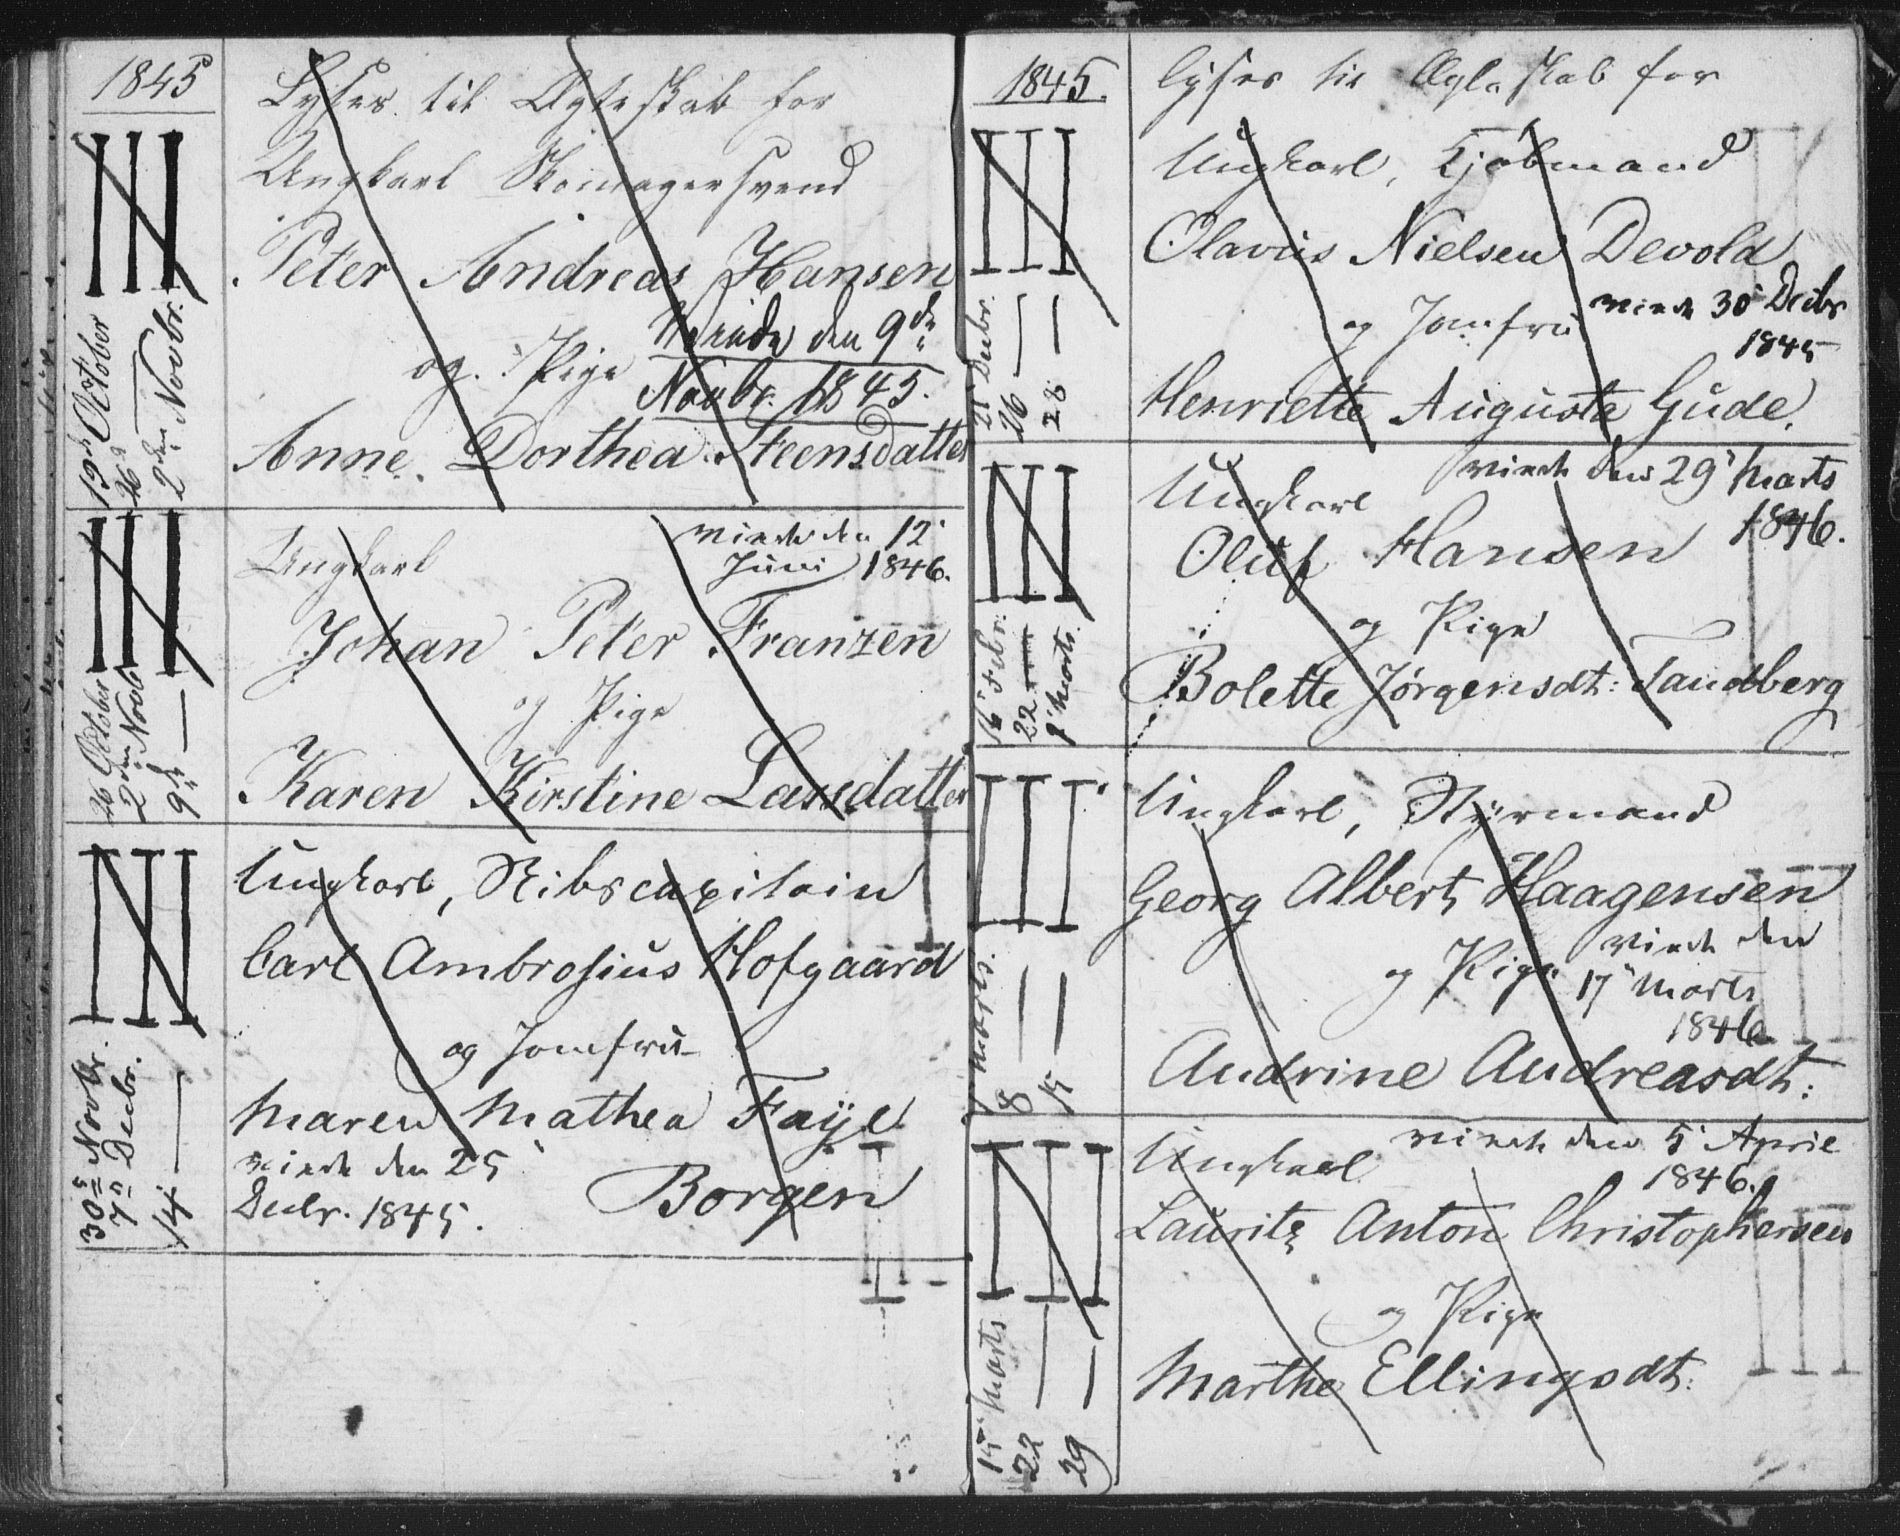 1845
Lyses til Ægteskab for
Ungkarl Skomagersvend
Peter Andreas Hansen
og Pige
Anne Dorthea Steensdatter
Viede den 9de
Novbr. 1845.
19de October
26de
2den Novbr.
Ungkarl
viede den 12'
Juni 1846.
Johan Peter Franzen
og Pige
Karen Kirstine Larsdatter
26 October
2den Novbr
9de —
Ungkarl, Skibscapitain
Carl Ambrosius Hofgaard
og Jomfru
Maren Mathea Faÿe
viede den 25'
Decbr. 1845.
Borgen
30 Novbr.
7 Decbr.
14 —
1845.
Lyses til Ægteskab for
Ungkarl, Kjøbmand
Olavus Nielsen Devold
og Jomfru
viede 30' Decbr
1845
Henriette Auguste Gude.
21' Decbr.
26 —
28 —
Ungkarl
viede den 29' Marts
1846.
Oluf Hansen
og Pige
Bolette Jørgensdt: Sandberg
Febr.
22 —
Marts.
Ungkarl, Styrmand
Georg Albert Haagensen
og Pige
viede den
17' Marts
1846
Andrine Andreasdt:
1 Marts.
8 —
15 —
Ungkarl
viede den 5' April
1846.
Lauritz Anton Christophersen
og Pige
Marthe Ellingsdt:
15' Marts
22 —
29 —